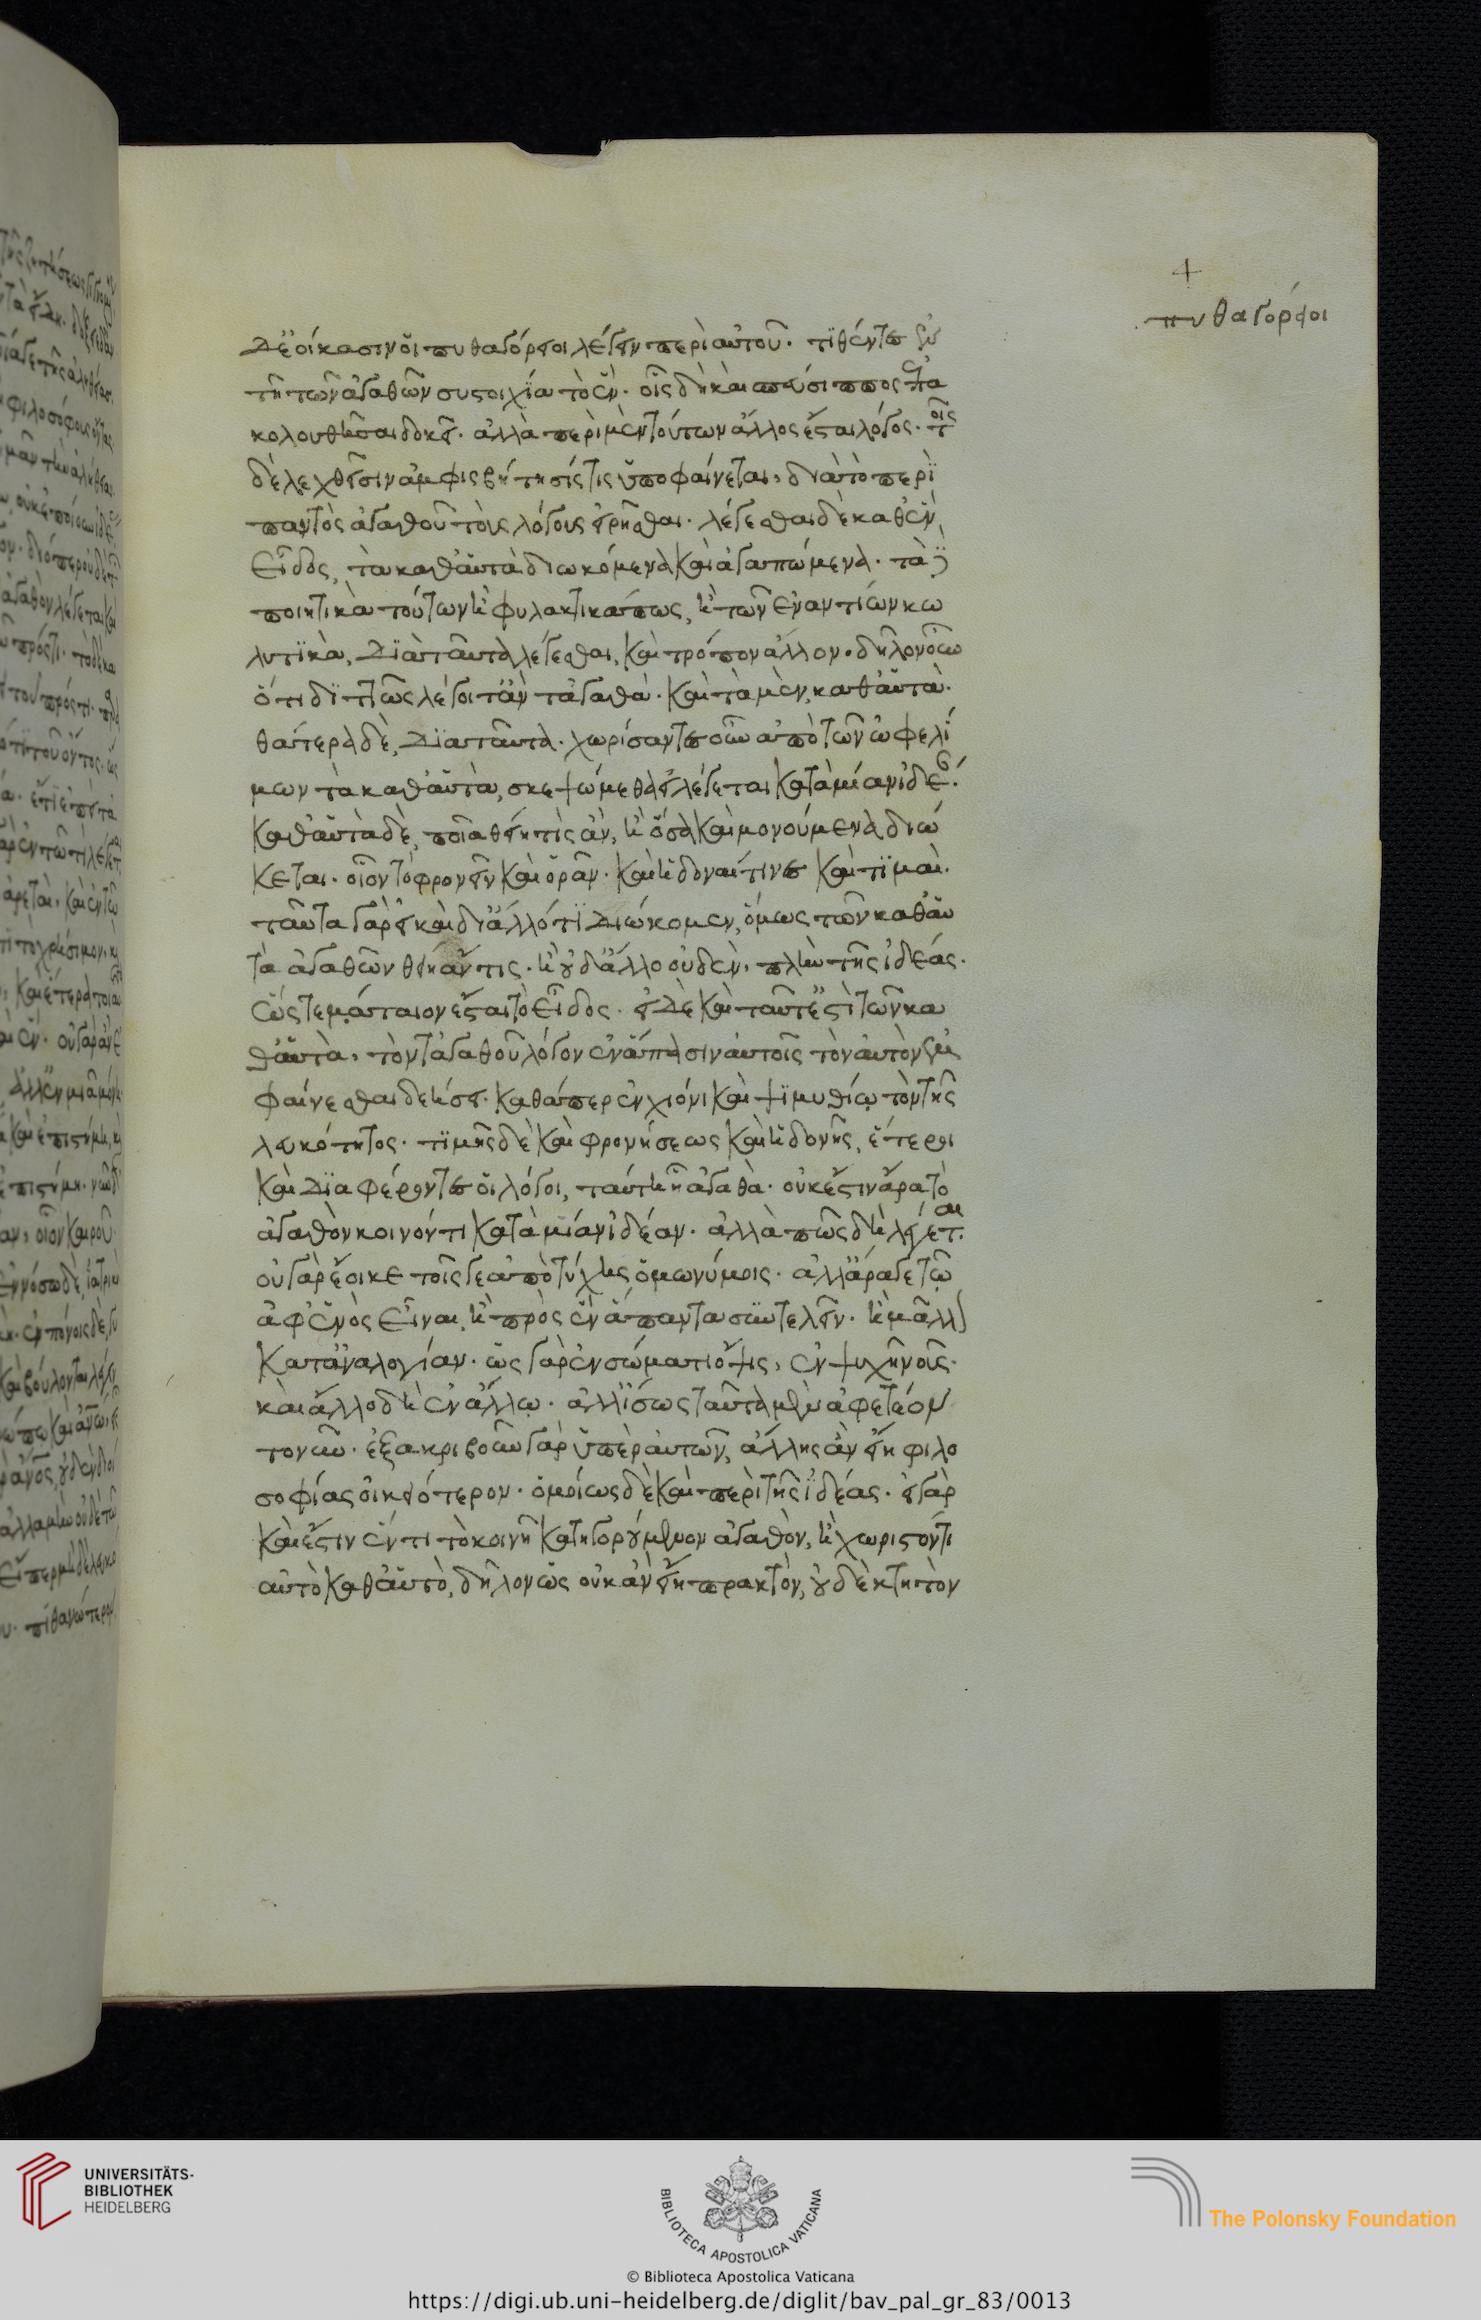 4
πυθαγόρειοι
δ' ἐοίκασιν οἱ πυθαγόρειοι λέγειν περὶ αὐτοῦ· τιθέντες ἐν
τῆ τῶν ἀγαθῶν συστοιχία τὸ ἕν· οἷς δὴ καὶ σπεύσιππος ἐπα
κολουθῆσαι δοκεῖ· ἀλλὰ περὶ μὲν τούτων ἄλλος ἔσται λόγος· τοῖς
δὲ λεχθεῖσιν ἀμφισβήτησίς τις ὑποφαίνεται, διὰ τὸ περὶ
παντὸς ἀγαθοῦ τοὺς λόγους εἰρῆσθαι· λέγεσθαι δὲ καθ' ἓν
εἶδος, τὰ καθ' αὑτὰ διωκόμενα καὶ ἀγαπώμενα· τὰ δὲ
ποιητικὰ τούτων ἢ φυλακτικά πως, ἢ τῶν ἐναντίων κω
λυτικὰ, διὰ ταῦτα λέγεσθαι, καὶ τρόπον ἄλλον· δῆλον οὖν
ὅτι διττῶς λέγοιτ' ἂν τἀγαθά· καὶ τὰ μὲν, καθ' αὑτὰ·
θάτερα δὲ, διὰ ταῦτα· χωρίσαντες οὖν ἀπὸ τῶν ὠφελί
μων τὰ καθ' αὑτὰ, σκεψώμεθα εἰ λέγεται κατὰ μίαν ἰδέαν·
καθ' αὑτὰ δὲ, ποῖα θείη τὶς ἂν, ἢ ὅσα καὶ μονούμενα διώ
κεται· οἷον τὸ φρονεῖν καὶ ὁρᾶν· καὶ ἡδοναί τινες καὶ τιμαὶ·
ταῦτα γὰρ εἰ καὶ δι' ἄλλό τι διώκομεν, ὅμως τῶν καθ' αὑ
τὰ ἀγαθῶν θείη ἄν τις· ἢ οὐδ' ἄλλο οὐδὲν, πλὴν τῆς ἰδέας·
ὥστε μάταιον ἔσται τὸ εἶδος· εἰ δὲ καὶ ταῦτ' ἐστὶ τῶν κα
θ' αὑτὰ, τὸν τἀγαθοῦ λόγον ἐν ἅπασιν αὐτοῖς τὸν αὐτὸν ἐμ
φαίνεσθαι δεήσει· καθάπερ ἐν χιόνι καὶ ψιμυθίῳ τὸν τῆς
λευκότητος· τιμῆς δὲ καὶ φρονήσεως καὶ ἡδονῆς, ἕτεροι
καὶ διαφέροντες οἱ λόγοι, ταύτη ἧ ἀγαθὰ· οὐκ ἔστιν ἄρα τὸ
ἀγαθὸν κοινόν τι κατὰ μίαν ἰδέαν· ἀλλὰ πῶς δὴ λέγεται·
οὐ γὰρ ἔοικε τοῖς γε ἀπὸ τύχης ὁμωνύμοις· ἀλλ' ἆρά γε τῷ
ἀφ' ἑνὸς εἶναι, ἢ πρὸς ἓν ἅπαντα συντελεῖν· ἢ μᾶλλον
κατ' ἀναλογίαν· ὡς γὰρ ἐν σώματι ὄψις, ἐν ψυχῆ νοῦς·
καὶ ἄλλο δὴ ἐν ἄλλῳ· ἀλλ' ἴσως ταῦτα μὲν ἀφετέον
τονῦν· ἐξακριβοῦν γὰρ ὑπὲρ αὐτῶν, ἄλλης ἂν εἴη φιλο
σοφίας οἰκειότερον· ὁμοίως δὲ καὶ περὶ τῆς ἰδέας· εἰ γὰρ
καὶ ἔστιν ἕν τι τὸ κοινῆ κατηγορούμενον ἀγαθὸν, ἢ χωριστόν τι
αὐτὸ καθ' αὑτὸ, δῆλον ὡς οὐκ ἂν εἴη πρακτὸν, οὐδὲ κτητὸν
UNIVERSITÄTS-
BIBLIOTHEK
HEIDELBERG
BIBLIOTECA APOSTOLICA VATICANA
© Biblioteca Apostolica Vaticana
The Polonsky Foundation
https://digi.ub.uni-heidelberg.de/diglit/bav_pal_gr_83/0013